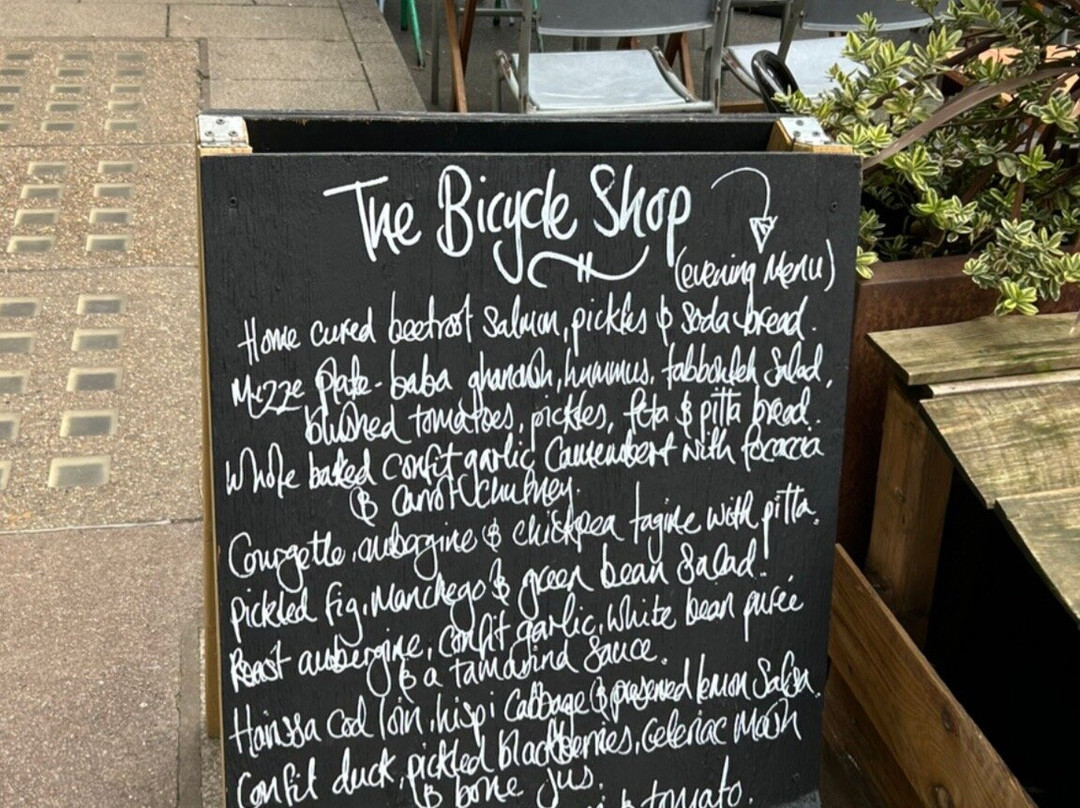 The Bicycle Shop
(evening Menu)
Home cured beetroot Salmon, pickles & Soda bread.
Mezze plate - baba ghanoush, hummus, tabbouleh Salad,
blushed tomatoes, pickles, feta & pitta bread.
Whole baked confit garlic Camembert with focaccia
& Carrot Chutney.
Courgette, aubergine & chickpea tagine with pitta.
pickled fig, Manchego & green bean Salad.
Roast aubergine, confit garlic, White bean purée
& a tamarind Sauce.
Harissa Cod loin, hispi Cabbage & preserved lemon Salsa.
Confit duck, pickled blackberries, celeriac Mash
& bone jus.
& tomato.